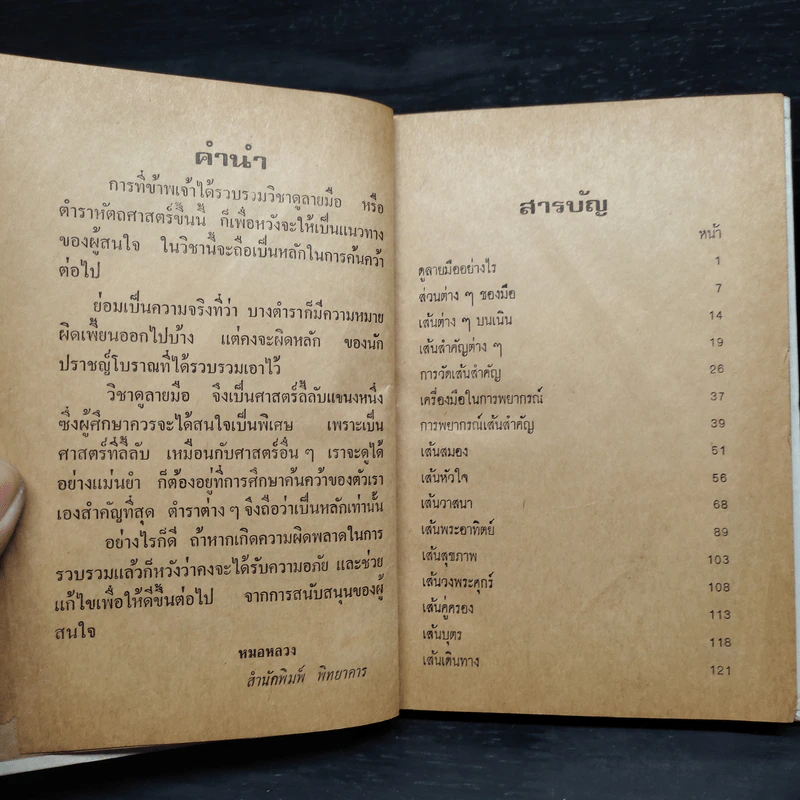 คำนำ
การที่ข้าพเจ้าได้รวบรวมวิชาดูลายมือ หรือ
ตำราหัตถศาสตร์ขึ้นนี้ ก็เพื่อหวังจะให้เป็นแนวทาง
ของผู้สนใจ ในวิชานี้จะถือเป็นหลักในการค้นคว้า
ต่อไป
ย่อมเป็นความจริงที่ว่า บางตำราก็มีความหมาย
ผิดเพี้ยนออกไปบ้าง แต่คงจะผิดหลัก ของนัก
ปราชญ์โบราณที่ได้รวบรวมเอาไว้
วิชาดูลายมือ จึงเป็นศาสตร์ลี้ลับแขนงหนึ่ง
ซึ่งผู้ศึกษาควรจะได้สนใจเป็นพิเศษ เพราะเป็น
ศาสตร์ที่ลี้ลับ เหมือนกับศาสตร์อื่น ๆ เราจะดูได้
อย่างแม่นยำ ก็ต้องอยู่ที่การศึกษาค้นคว้าของตัวเรา
เองสำคัญที่สุด ตำราต่าง ๆ จึงถือว่าเป็นหลักเท่านั้น
อย่างไรก็ดี ถ้าหากเกิดความผิดพลาดในการ
รวบรวมแล้วก็หวังว่าคงจะได้รับความอภัย และช่วย
แก้ไขเพื่อให้ดีขึ้นต่อไป จากการสนับสนุนของผู้
สนใจ
หมอหลวง
สำนักพิมพ์ พิทยาคาร
สารบัญ
หน้า
ดูลายมืออย่างไร 1
ส่วนต่าง ๆ ของมือ 7
เส้นต่าง ๆ บนเนิน 14
เส้นสำคัญต่าง ๆ 19
การวัดเส้นสำคัญ 26
เครื่องมือในการพยากรณ์ 37
การพยากรณ์เส้นสำคัญ 39
เส้นสมอง 51
เส้นหัวใจ 56
เส้นวาสนา 68
เส้นพระอาทิตย์ 89
เส้นสุขภาพ 103
เส้นวงพระศุกร์ 108
เส้นคู่ครอง 113
เส้นบุตร 118
เส้นเดินทาง 121